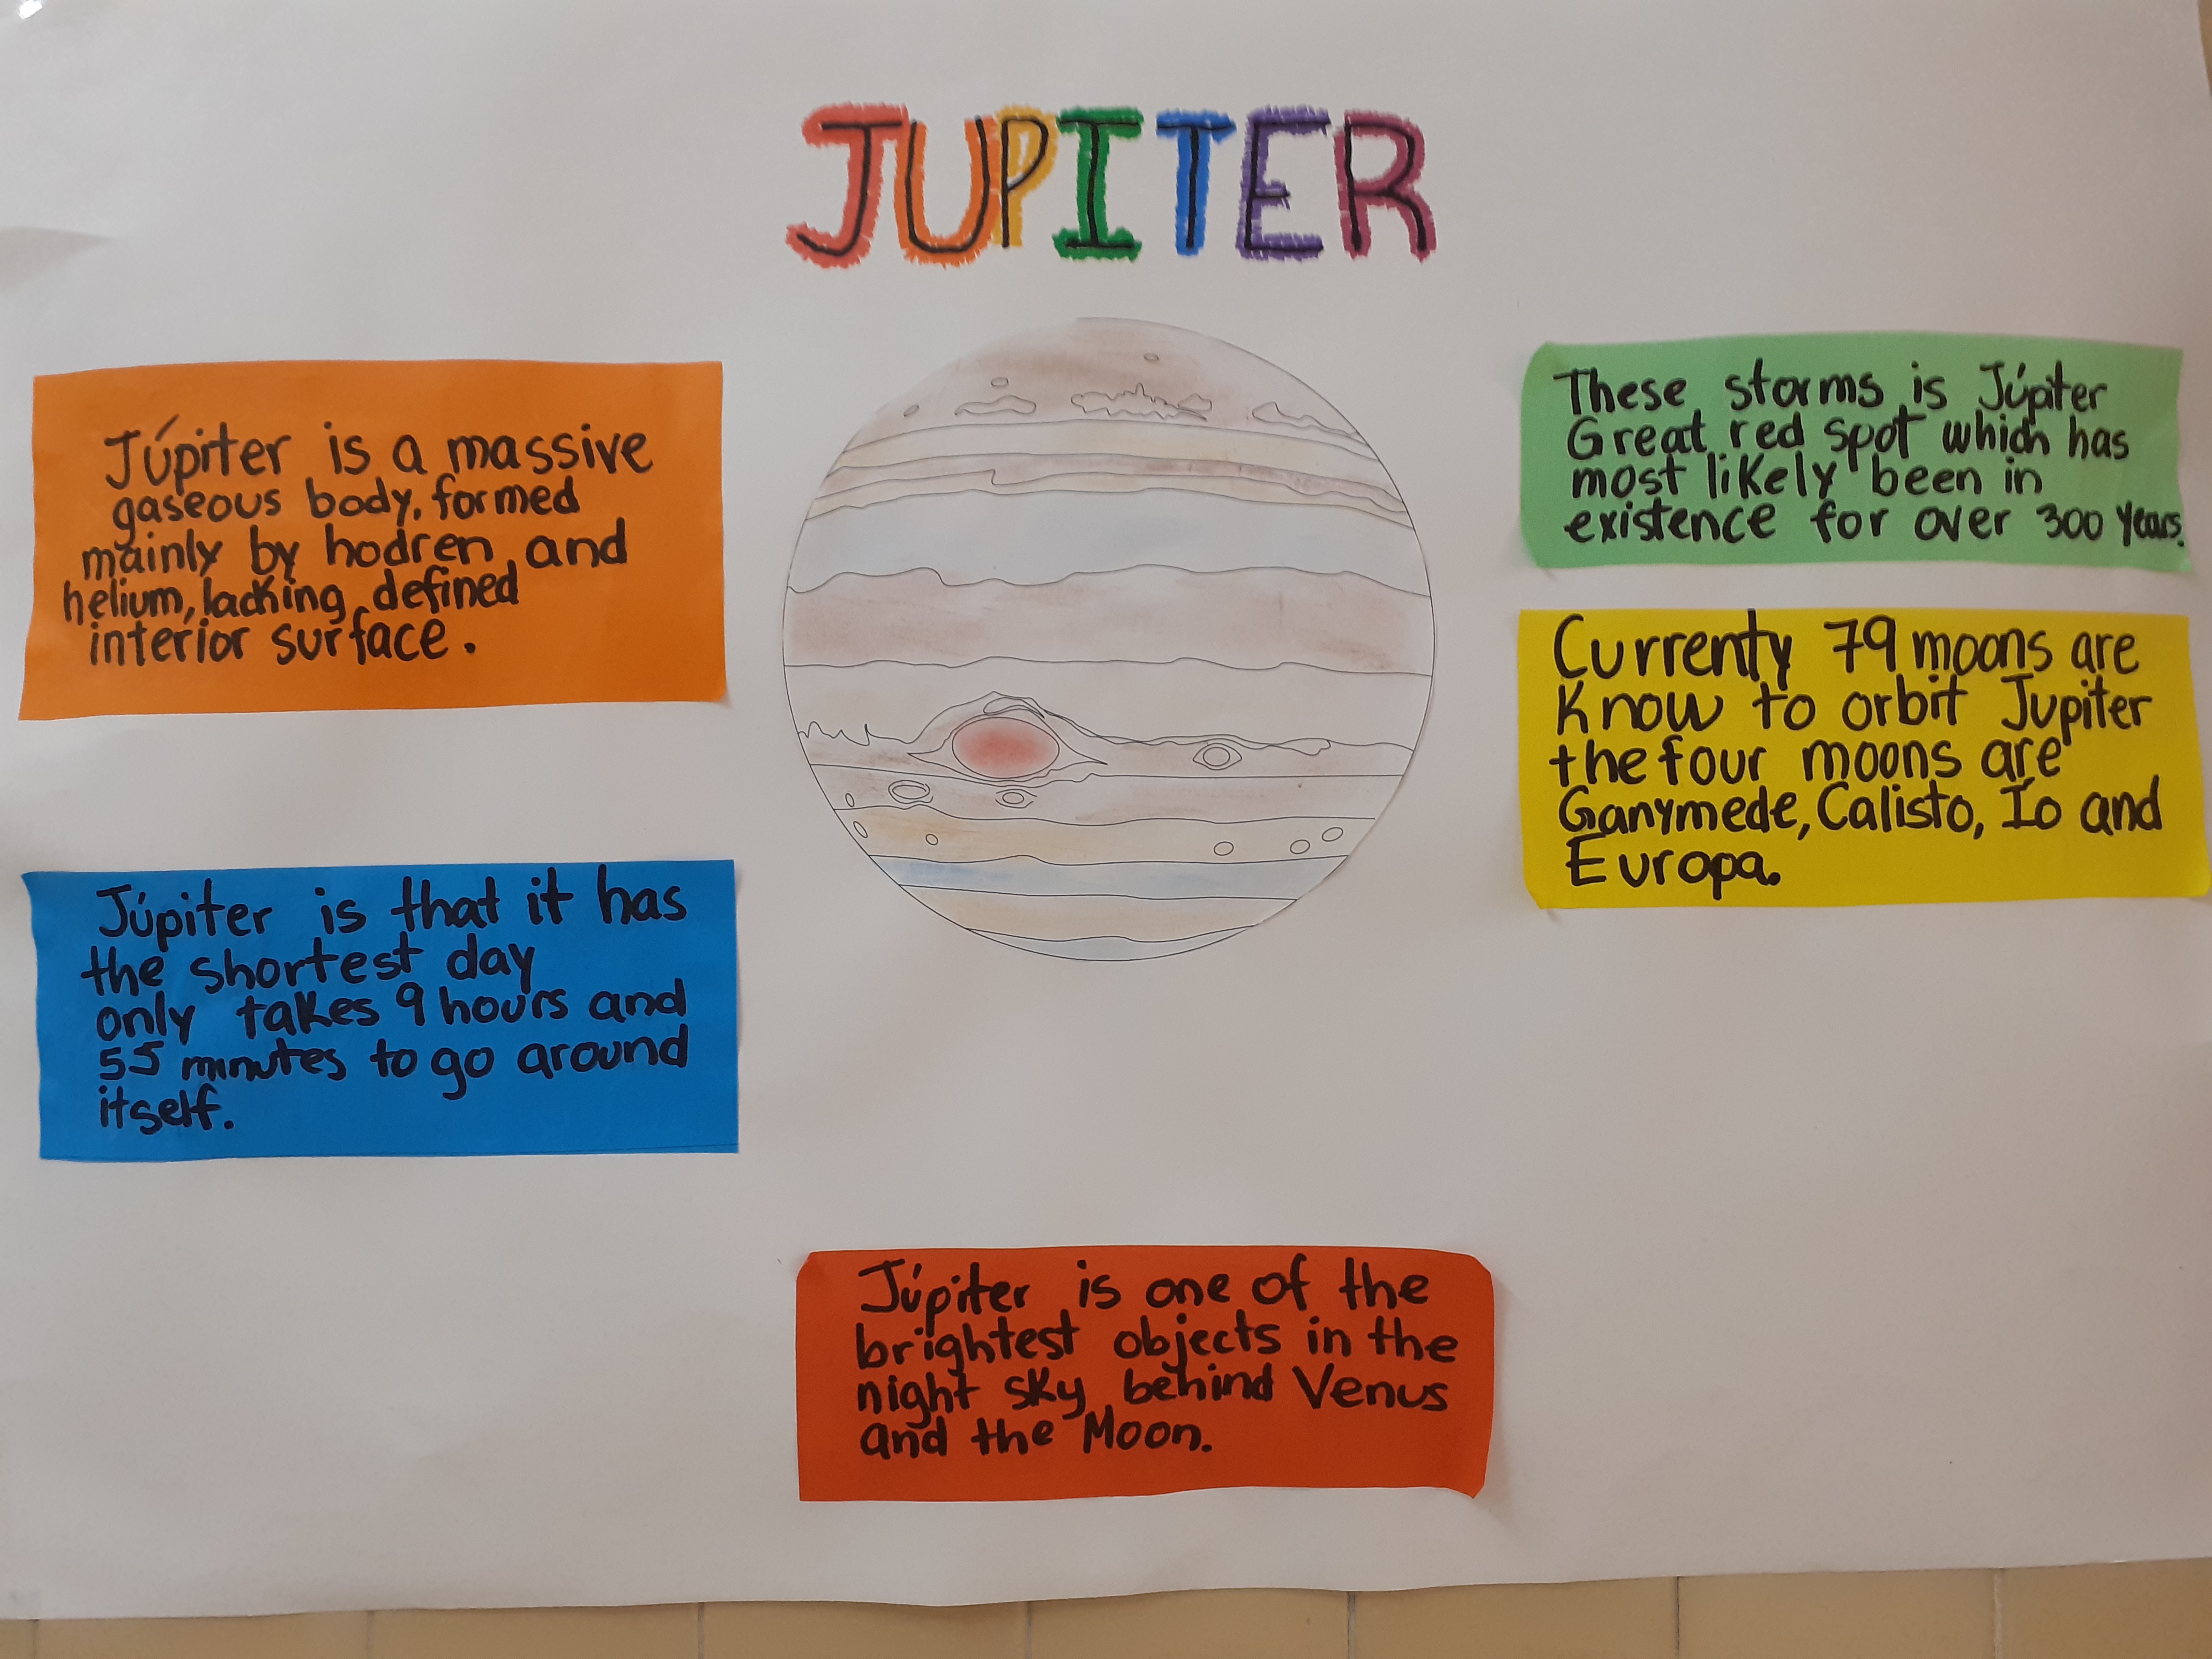 JUPITER
Júpiter is a massive
gaseous body, formed
mainly by hodren and
helium, lacking defined
interior surface.
Júpiter is that it has
the shortest day
only takes 9 hours and
55 minutes to go around
itself.
These storms is Júpiter
Great red spot which has
most likely been in
existence for over 300 years.
Currenty 79 moons are
Know to orbit Jupiter
the four moons are
Ganymede, Calisto, Io and
Europa.
Júpiter is one of the
brightest objects in the
night sky behind Venus
and the Moon.